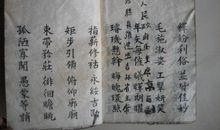 釋紛利俗 並皆佳
毛施淑姿 工顰妍笑
人民政府
年矢每催 曦暉朗曜
璇璣懸斡 晦魄環照
指薪修祜 永綏吉劭
矩步引領 俯仰廊廟
束帶矜莊 徘徊瞻眺
孤陋寡聞 愚蒙等誚